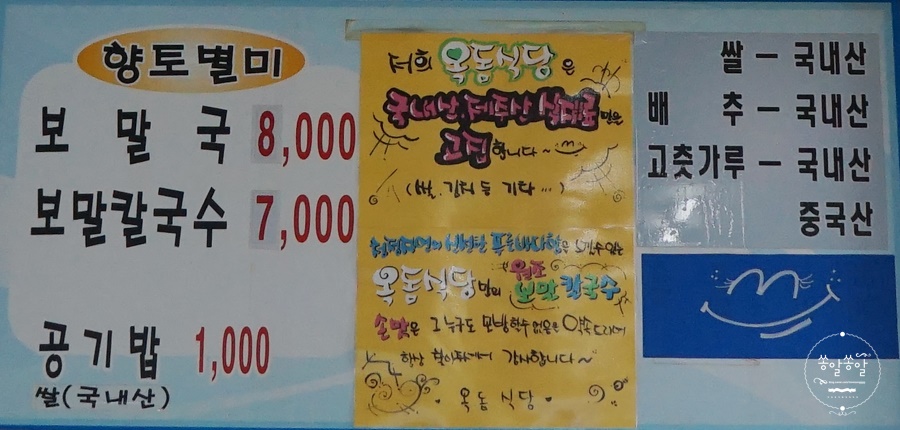 향토별미
보말국 8,000
보말칼국수 7,000
공기밥 1,000
쌀(국내산)
저희 옥돔식당은
국내산, 제주산 식재료만을
고집합니다~
(쌀, 김치 등 기타...)
청정지역의 신선한 푸른바다향을 느낄수있는
옥돔식당만의 원조
보말칼국수
손맛은 그누구도 모방할수 없음을 약속드리며
항상 찾아주셔서 감사합니다~
옥돔식당
쌀 - 국내산
배추 - 국내산
고춧가루 - 국내산
중국산
쫑알쫑알